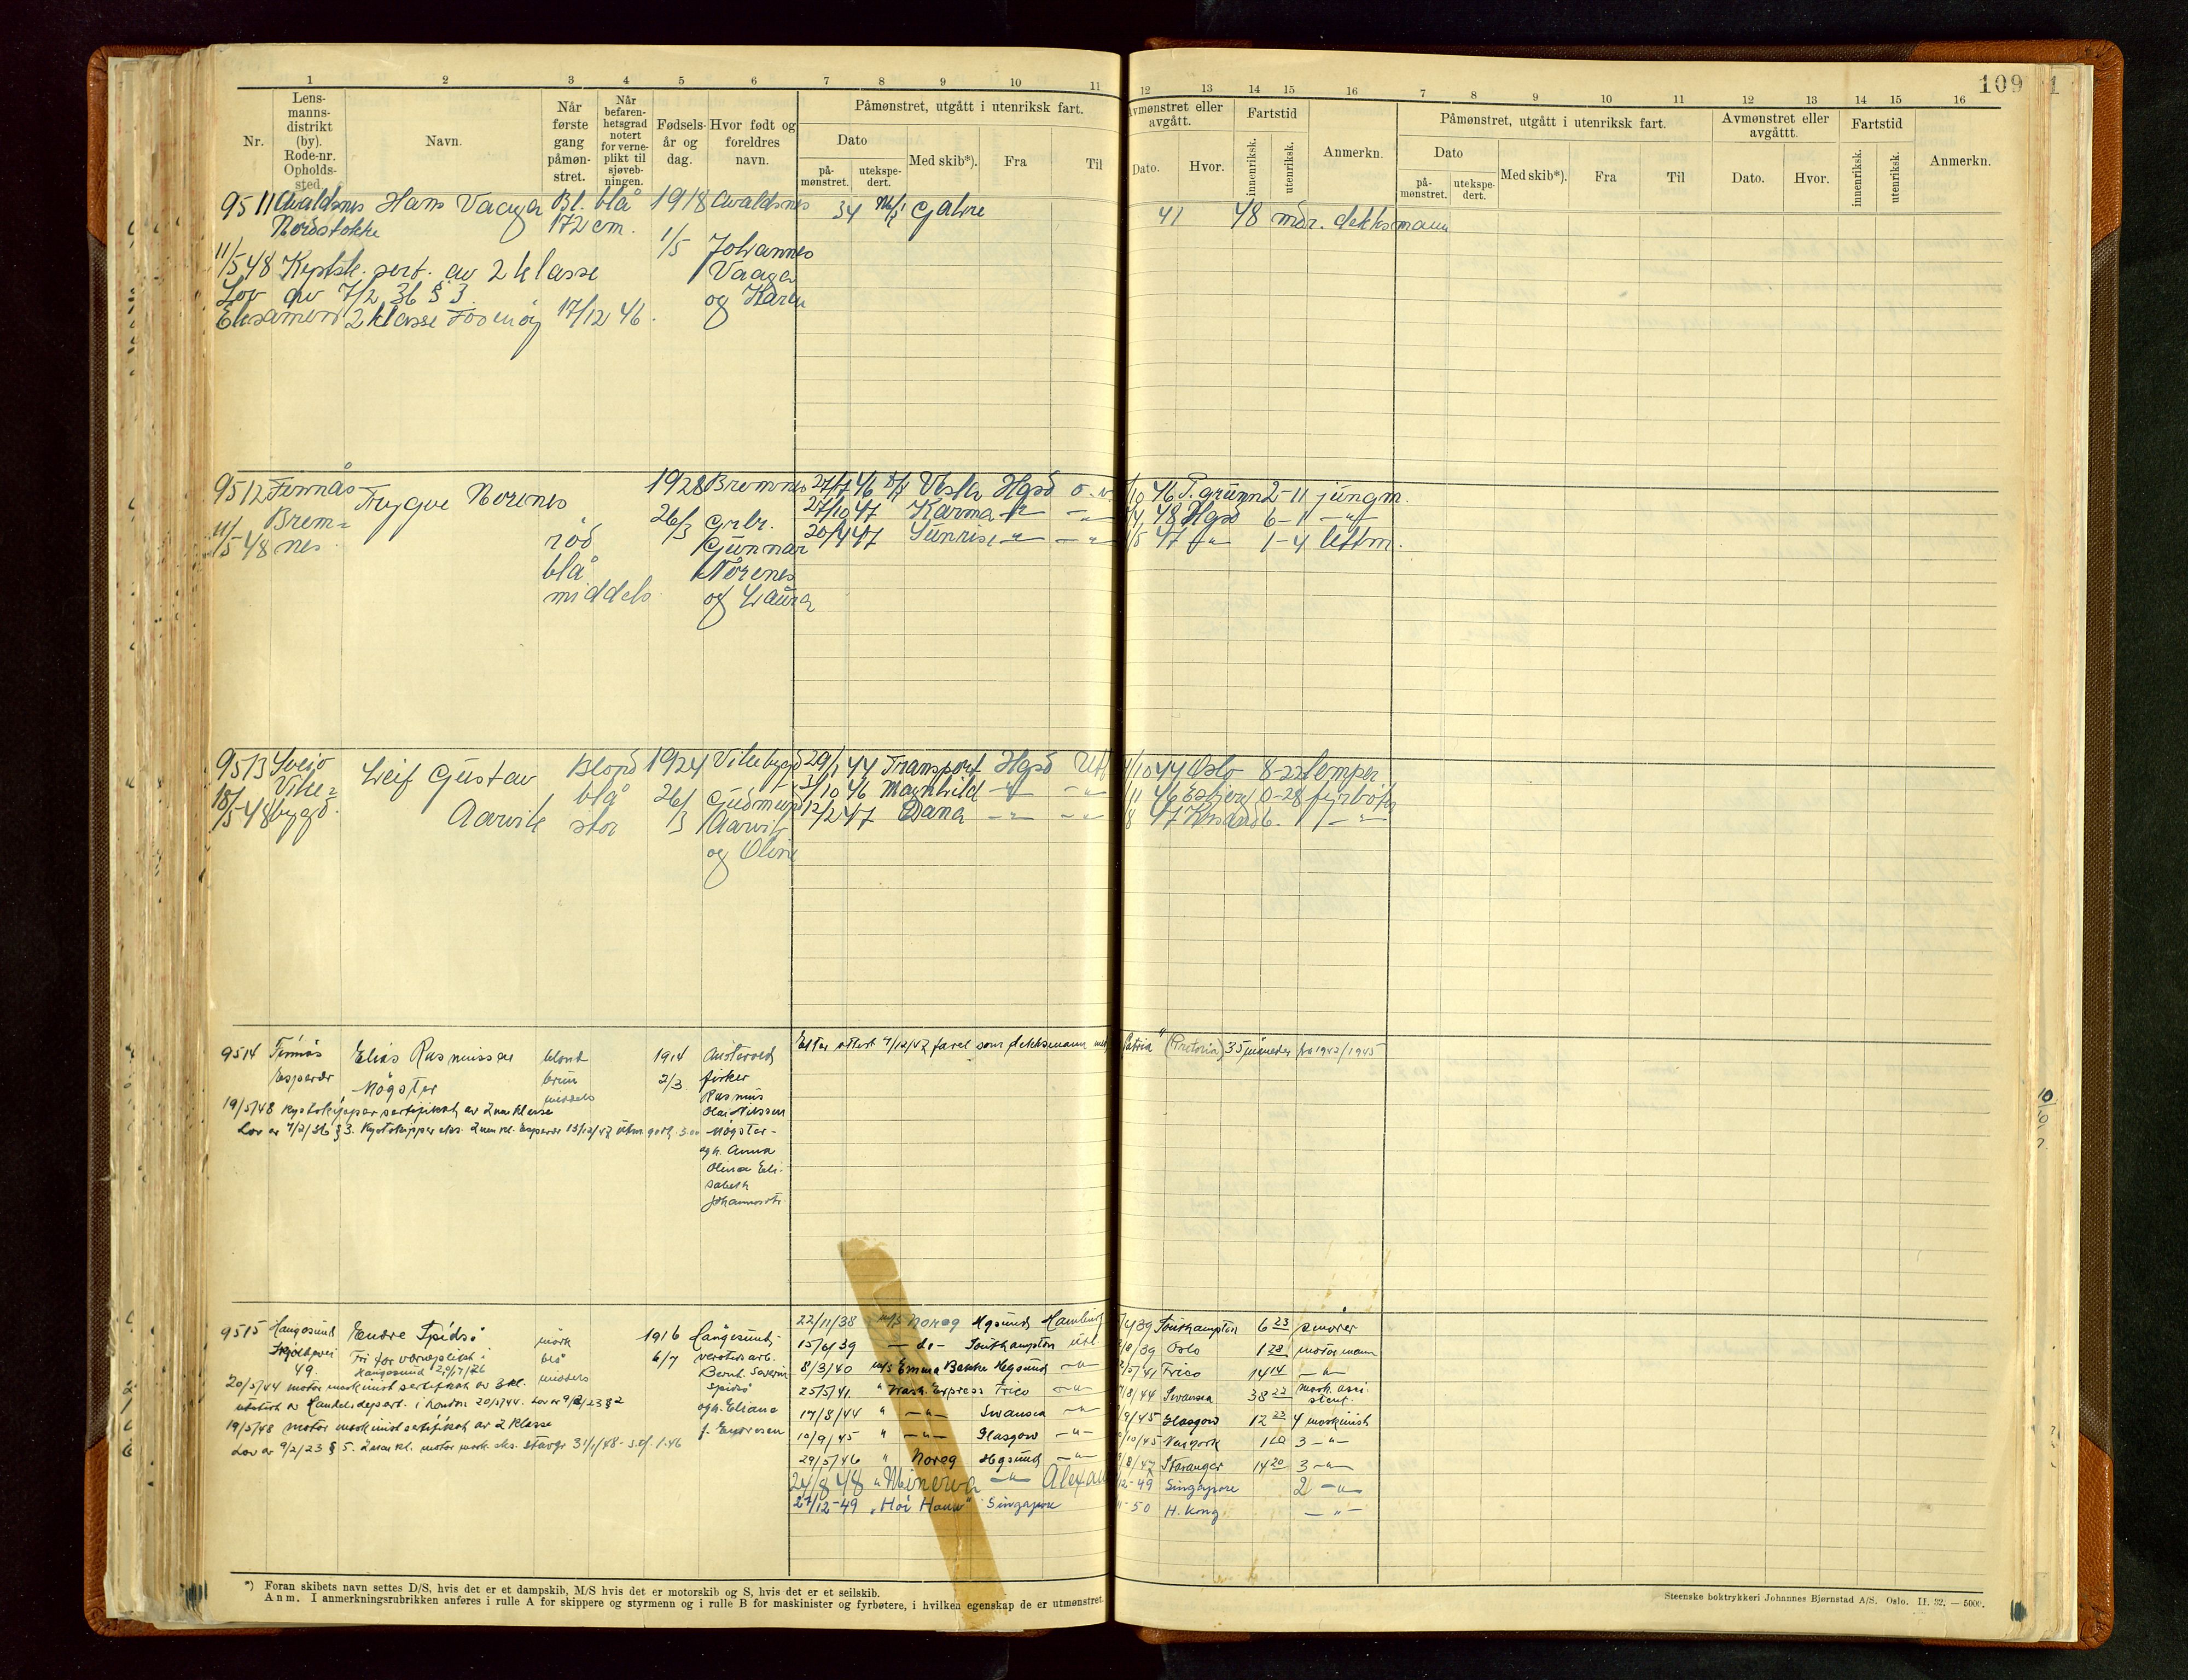 1 2 3 4 5 6 7 8 9 10 11 12 13 14 15 16 7 8 9 10 11 12 13 14 15 16
109
Nr.
Lens-
manns-
distrikt
(by).
Rode-nr.
Opholds-
sted.
Navn.
Når
første
gang
påmøn-
stret.
Når
befaren-
hetsgrad
notert
for verne-
plikt til
sjøveb-
ningen.
Fødsels-
år og
dag.
Hvor født og
foreldres
navn.
Påmønstret, utgått i utenriksk fart.
Dato
på-
mønstret.
utekspe-
dert.
Med skib*).
Fra
Til
Avmønstret eller
avgått.
Dato.
Hvor.
Fartstid
innenriksk.
utenriksk.
Anmerkn.
Påmønstret, utgått i utenriksk fart.
Dato
på-
mønstret.
utekspe-
dert.
Med skib*).
Fra
Til
Avmønstret eller
avgåttt.
Dato.
Hvor.
Fartstid
innenriksk.
utenriksk.
Anmerkn.
9511 Avaldsnes Hans Vaaga Bl. blå 1918 Avaldsnes 34 41 48 mdr. dekksmann
Nordstokke 172 cm. 1/5 Johannes
11/5 48 Kystsk. sert. av 2 klasse Vaaga
Lov av 7/2 36 § 3. og Karen
Eksamen 2 klasse 17/12 46.
9512 Finnås Trygve Norenes 1928 Bremnes 27/7 46 Vestla Hgsd 46 T. grunn 2-11 jungm.
Brem= 26/3 Grbr. 27/10 47 Karma -"- -"- 48 Hgsd 6-1 -"-
11/5 48 nes. rød Gunnar 20/4 47 Sunrise -"- -"- 47 -"- 1-4 lettm.
blå Norenes
middels og Laura
9513 Sveio Leif Gustav Blond 1924 Vikebygd 29/1 44 Transport Hgsd Utl 44 Oslo 8-22 lemper
Vike= blå 26/3 Gudmund 3/10 46 Magnhild -"- -"- 46 Esbjerg 0-28 fyrbøter
18/5 48 bygd. Aarvik stor Aarvik 12/2 47 Dana -"- -"- 47 -"-
og Oline
9514 Finnås Elias Rasmussen blond 1914 Austevoll Etter attest 4/12/47 faret som dekksmann med "Patria" (Pretoria) 35 måneder fra 1942/1945
Espevær Møgster brun 2/3 fisker
middels Rasmus
19/5/48 kystskippersertifikat av 2nen klasse Olai Nilssen
Lov av 7/2/36 § 3. Kystskipper eks. 2nen kl. Espevær 13/12/47 Møgster -
og h. Anna
Olina Eli-
sabeth
Johannesdtr.
9515 Haugesund Endre Spidsø mørk 1916 Haugesund- 22/11/38 M/S Noreg Hgsund Hamburg 4 39 Southampton 6 23 smører
Skjoldavei blå 6/7 verstedsarb. 15/6/39 -do- Southampton utl 8/39 Oslo 1 28 motormann
49. Fri for værneplikt i middels Bernt Severin 8/3/40 M/S Emma Bakke Hgsund -"- 5/41 Frico 14 14 -"-
Haugesund 29/7/26 Spidsø 25/5/41. " Wash. Express Frico -"- 8/44 Swansea 38 22 mask. assi-
stent.
20/5/44 motormaskinist sertifikat av 3 kl. og h. Eliane 17/8/44 " -"- Swansea -"- 9/45 Glasgow 12 23 4 maskinist
utstedt av Handelsdepart. i London 20/5/44. Lov av 9/2/23 § 2 f. Endresen 10/9/45 " -"- Glasgow -"- 10/45 3 -"-
19/5/48 motor maskinistsertifikat av 2 klasse 29/5/46 " Noreg Hgsund -"- 8/47 Stavanger 14 20 3 -"-
Lov av 9/2/23 § 5. 2nen kl. motor mask. eks. Stavgr 31/1/48 24/8 48 " Minerva -"- 12-49 Singapore 2 -"-
27/12-49 "Hoi Houw" Singapore 50 H. Kong -"-
*) Foran skibets navn settes D/S, hvis det er et dampskib, M/S hvis det er motorskib og S, hvis det er et seilskib.
Anm. I anmerkningsrubrikken anføres i rulle A for skippere og styrmenn og i rulle B for maskinister og fyrbøtere, i hvilken egenskap de er utmønstret.
Steenske boktrykkeri Johannes Bjørnstad A/S. Oslo. II. 32. — 5000.